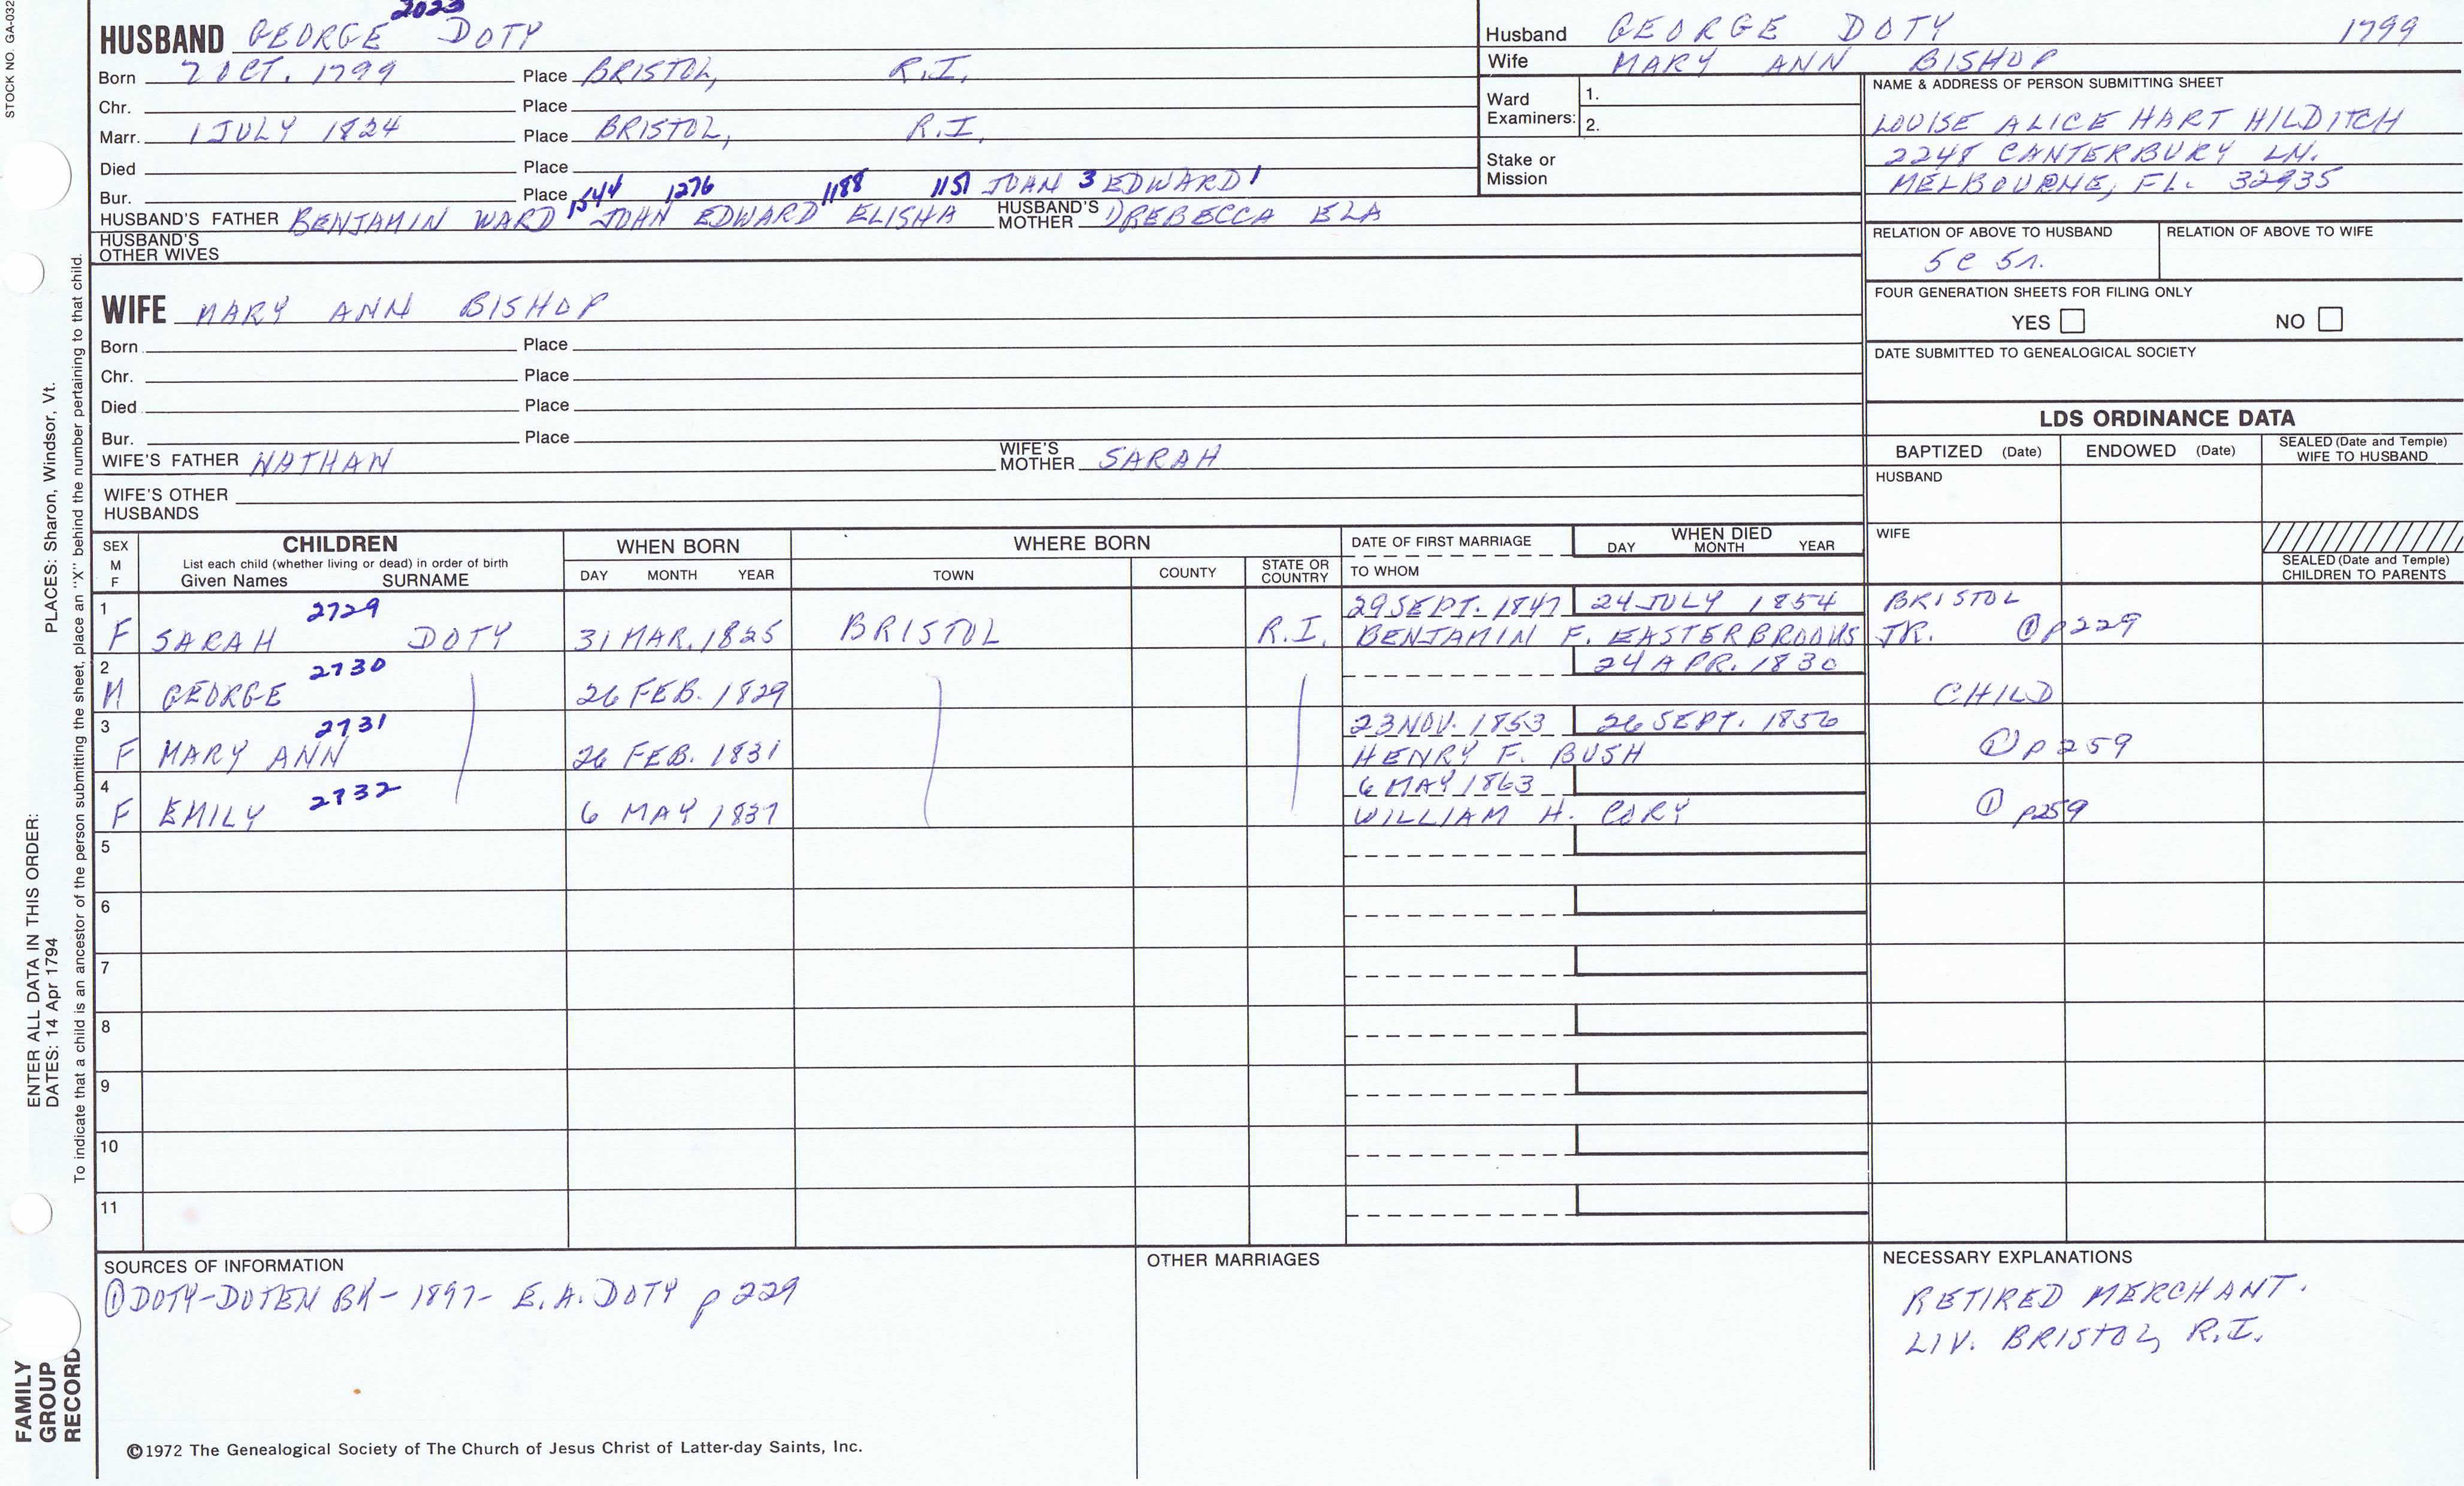 STOCK NO. GA-032
2023
HUSBAND GEORGE DOTY
Born 7 OCT. 1799 Place BRISTOL, R.I.
Chr. Place
Marr. 1 JULY 1824 Place BRISTOL, R.I.
Died Place
Bur. Place 1544 1276 1188 1151 JOHN 3 EDWARD 1
HUSBAND'S FATHER BENJAMIN WARD JOHN EDWARD ELISHA HUSBAND'S MOTHER 1) REBECCA ELA
HUSBAND'S OTHER WIVES
Husband GEORGE DOTY 1799
Wife MARY ANN BISHOP
Ward Examiners: 1.
2.
Stake or Mission
NAME & ADDRESS OF PERSON SUBMITTING SHEET
LOUISE ALICE HART HILDITCH
2248 CANTERBURY LN.
MELBOURNE, FL. 32935
RELATION OF ABOVE TO HUSBAND RELATION OF ABOVE TO WIFE
5 C 5r.
FOUR GENERATION SHEETS FOR FILING ONLY
YES NO
DATE SUBMITTED TO GENEALOGICAL SOCIETY
WIFE MARY ANN BISHOP
Born Place
Chr. Place
Died Place
Bur. Place
WIFE'S FATHER NATHAN WIFE'S MOTHER SARAH
WIFE'S OTHER HUSBANDS
LDS ORDINANCE DATA
BAPTIZED (Date) ENDOWED (Date) SEALED (Date and Temple) WIFE TO HUSBAND
HUSBAND
WIFE
SEALED (Date and Temple) CHILDREN TO PARENTS
SEX M F
CHILDREN
List each child (whether living or dead) in order of birth
Given Names SURNAME
WHEN BORN
DAY MONTH YEAR
WHERE BORN
TOWN COUNTY STATE OR COUNTRY
DATE OF FIRST MARRIAGE
TO WHOM
WHEN DIED
DAY MONTH YEAR
1 2729 29 SEPT. 1847 24 JULY 1854 BRISTOL
F SARAH DOTY 31 MAR. 1825 BRISTOL R.I. BENJAMIN F. EASTERBROOKS JR. ① p229
2 2730 24 APR. 1830
M GEORGE 26 FEB. 1829 CHILD
3 2731 23 NOV. 1853 26 SEPT. 1856
F MARY ANN 26 FEB. 1831 HENRY F. BUSH ① p 259
4 2732 6 MAY 1863
F EMILY 6 MAY 1837 WILLIAM H. CORY ① p259
5
6
7
8
9
10
11
SOURCES OF INFORMATION
① DOTY-DOTEN BK - 1897 - E.A. DOTY p 229
OTHER MARRIAGES
NECESSARY EXPLANATIONS
RETIRED MERCHANT.
LIV. BRISTOL, R.I.
©1972 The Genealogical Society of The Church of Jesus Christ of Latter-day Saints, Inc.
FAMILY GROUP RECORD
ENTER ALL DATA IN THIS ORDER:
DATES: 14 Apr 1794
PLACES: Sharon, Windsor, Vt.
To indicate that a child is an ancestor of the person submitting the sheet, place an "X" behind the number pertaining to that child.